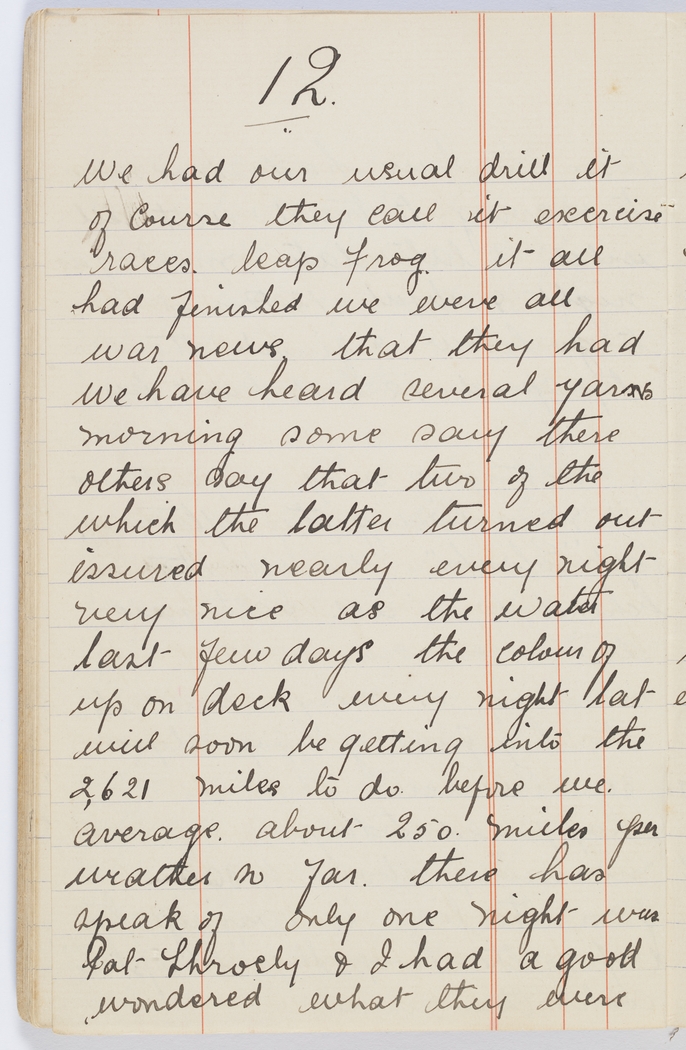 12.
We had our usual drill it
of course they call it exercise
races. leap frog. it all
had finished we were all
war news. that they had
we have heard several yarns
morning some say there
others say that two of the
which the latter turned out
issured nearly every night
very nice as the water
last few days the colour of
up on deck every night lat
will soon be getting into the
2,621 miles to do before we.
average. about 250. miles per
weather so far. there has
speak of only one night was
Pat & I had a good
wondered what they were